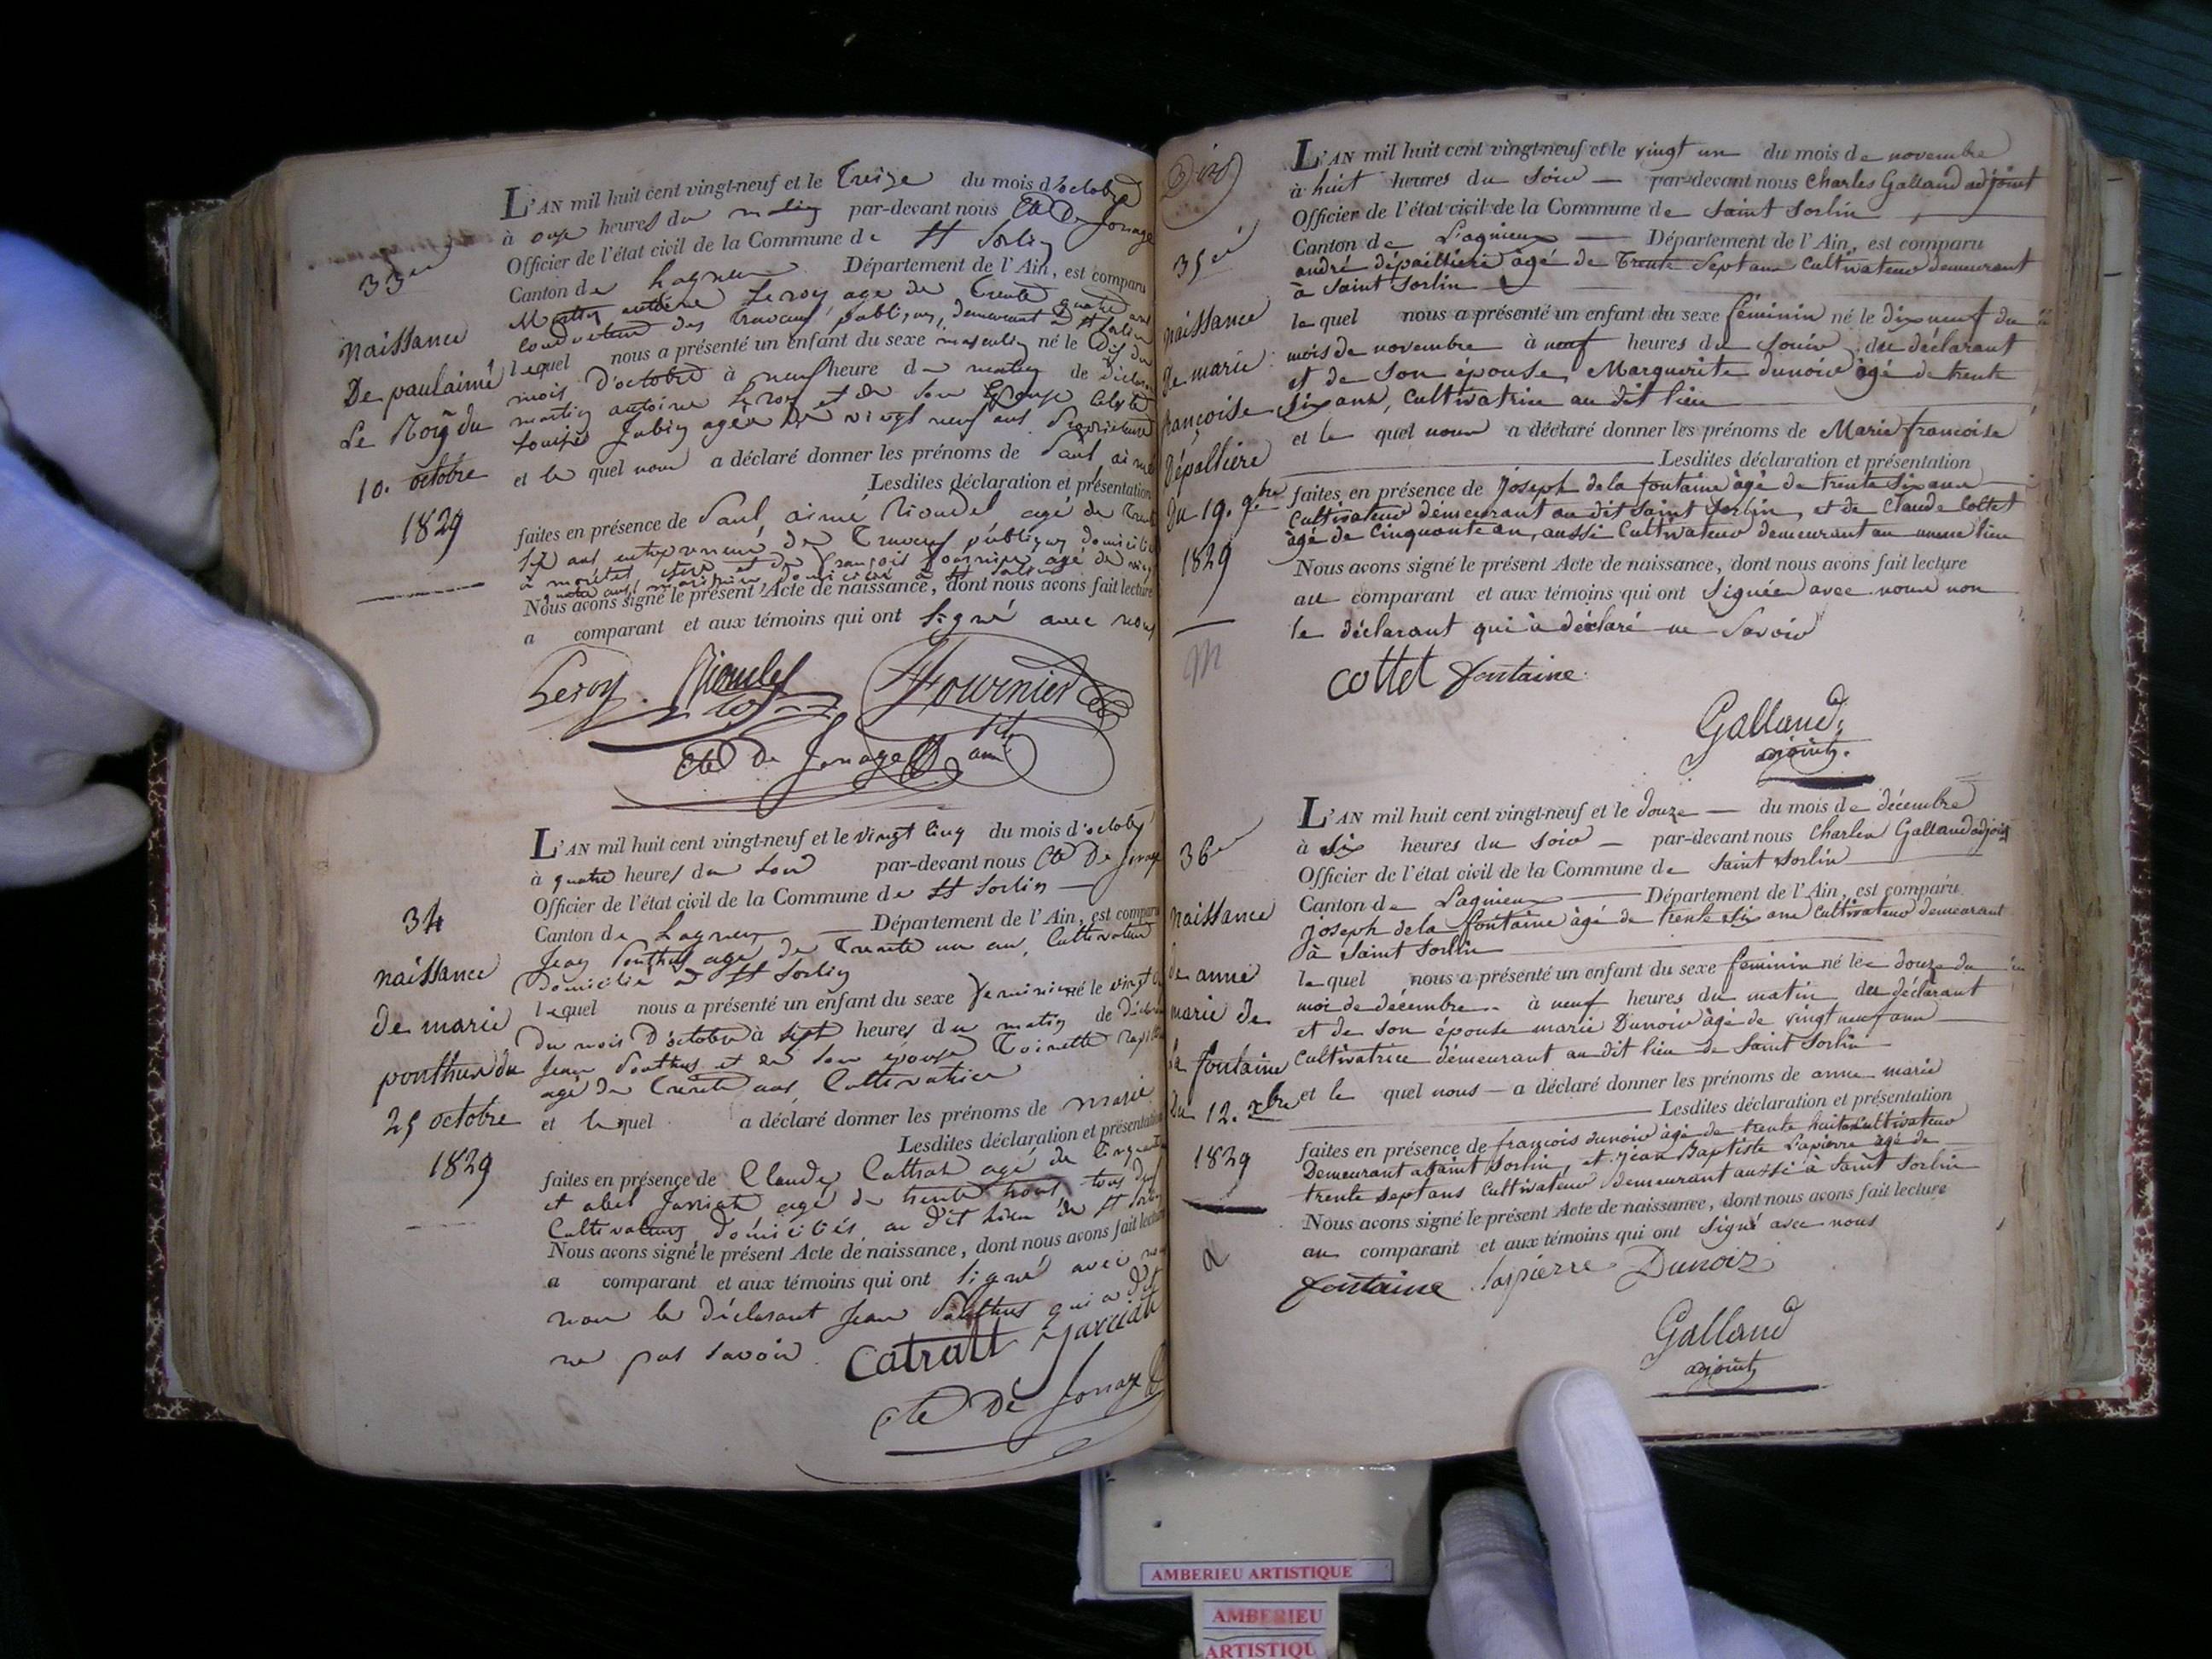 33e
naissance
De paul aimé
Le Roy du
10. octobre
1829
L'AN mil huit cent vingt-neuf et le Treize du mois d'octobre
à onze heures du matin par-devant nous Cte De Jonage
Officier de l'état civil de la Commune de St Sorlin
Canton de Lagnieu Département de l'Ain, est comparu
Martin antoine Leroy age de Trente quatre ans
Conducteur des Travaux publiques, demeurant à St Sorlin
lequel nous a présenté un enfant du sexe masculin né le Dix du
mois D'octobre à neuf heure du matin de déclarant
martin antoine Leroy et de son Epouse
Louise Jubin agée de vingt neuf ans
et le quel nous a déclaré donner les prénoms de Paul aimé
Lesdites déclaration et présentation
faites en présence de Paul, aimé agé de Trente
ans entrepreneur de Travaux publiques domicilié
à et de François fournier agé de
Nous avons signé le présent Acte de naissance, dont nous avons fait lecture
a comparant et aux témoins qui ont signé avec nous
Leroy. Fournier
Cte De Jonage
34
naissance
de marie
ponthus du
25 octobre
1829
L'AN mil huit cent vingt-neuf et le vingt cinq du mois d'octobre
à quatre heures du soir par-devant nous Cte De Jonage
Officier de l'état civil de la Commune de St Sorlin
Canton de Lagnieu Département de l'Ain, est comparu
Jean Ponthus agé de Trente un an, Cultivateur
Domicilié à St Sorlin
lequel nous a présenté un enfant du sexe feminin né le vingt
du mois D'octobre à sept heures du matin de déclarant
Jean Ponthus et de son épouse Toinette
agé de Trente ans, Cultivatrice
et lequel a déclaré donner les prénoms de marie
Lesdites déclaration et présentation
faites en présence de Claude Cattrat agé de Cinquante
et abel Jarriat agé de trente trois tous deux
Cultivateurs, domiciliés au dit lieu de St Sorlin
Nous avons signé le présent Acte de naissance, dont nous avons fait lecture
a comparant et aux témoins qui ont signé avec nous
non le déclarant Jean Ponthus qui a dit
ne pas savoir. Catratt Jarriat
Cte De Jonage
Dix
35e
naissance
de marie
françoise
Dépaltiere
du 19. 9bre
1829
M
L'AN mil huit cent vingt-neuf et le vingt un du mois de novembre
à huit heures du soir par-devant nous Charles Galland adjoint
Officier de l'état civil de la Commune de Saint Sorlin
Canton de Lagnieux Département de l'Ain, est comparu
andré dépaltiere âgé de Trente Sept ans Cultivateur demeurant
à Saint Sorlin
lequel nous a présenté un enfant du sexe féminin né le dix neuf du
mois de novembre à neuf heures du soir du déclarant
et de son épouse, Marguerite dunoir âgé de trente
Six ans, cultivatrice au dit lieu
et le quel nous a déclaré donner les prénoms de Marie françoise
Lesdites déclaration et présentation
faites en présence de joseph de la fontaine âgé de trente six ans
Cultivateur demeurant au dit Saint Sorlin, et de Claude Cottet
âgé de Cinquante an, aussi Cultivateur demeurant au même lieu
Nous avons signé le présent Acte de naissance, dont nous avons fait lecture
au comparant et aux témoins qui ont Signées avec nous non
le déclarant qui à déclaré ne Savoir
cottet fontaine.
Galland,
adjoint.
36e
naissance
de anne
marie De
la fontaine
du 12. xbre
1829
L'AN mil huit cent vingt-neuf et le douze du mois de décembre
à six heures du soir par-devant nous Charles Galland adjoint
Officier de l'état civil de la Commune de Saint Sorlin
Canton de Lagnieux Département de l'Ain, est comparu
joseph de la fontaine âgé de trente six ans Cultivateur demeurant
à Saint Sorlin
lequel nous a présenté un enfant du sexe feminin né le douze du
moi de décembre à neuf heures du matin du déclarant
et de son épouse marie Dunoir âgé de vingt neuf ans
Cultivatrice demeurant au dit lieu de Saint Sorlin
et le quel nous a déclaré donner les prénoms de anne marie
Lesdites déclaration et présentation
faites en présence de françois dunoir âgé de trente huit Cultivateur
Demeurant a Saint Sorlin, et Jean Baptiste Lapierre âgé de
trente sept ans Cultivateur demeurant aussi à Saint Sorlin
Nous avons signé le présent Acte de naissance, dont nous avons fait lecture
au comparant et aux témoins qui ont signé avec nous
fontaine lapierre Dunoiz
Galland
adjoint
AMBERIEU ARTISTIQUE
AMBERIEU
ARTISTIQU